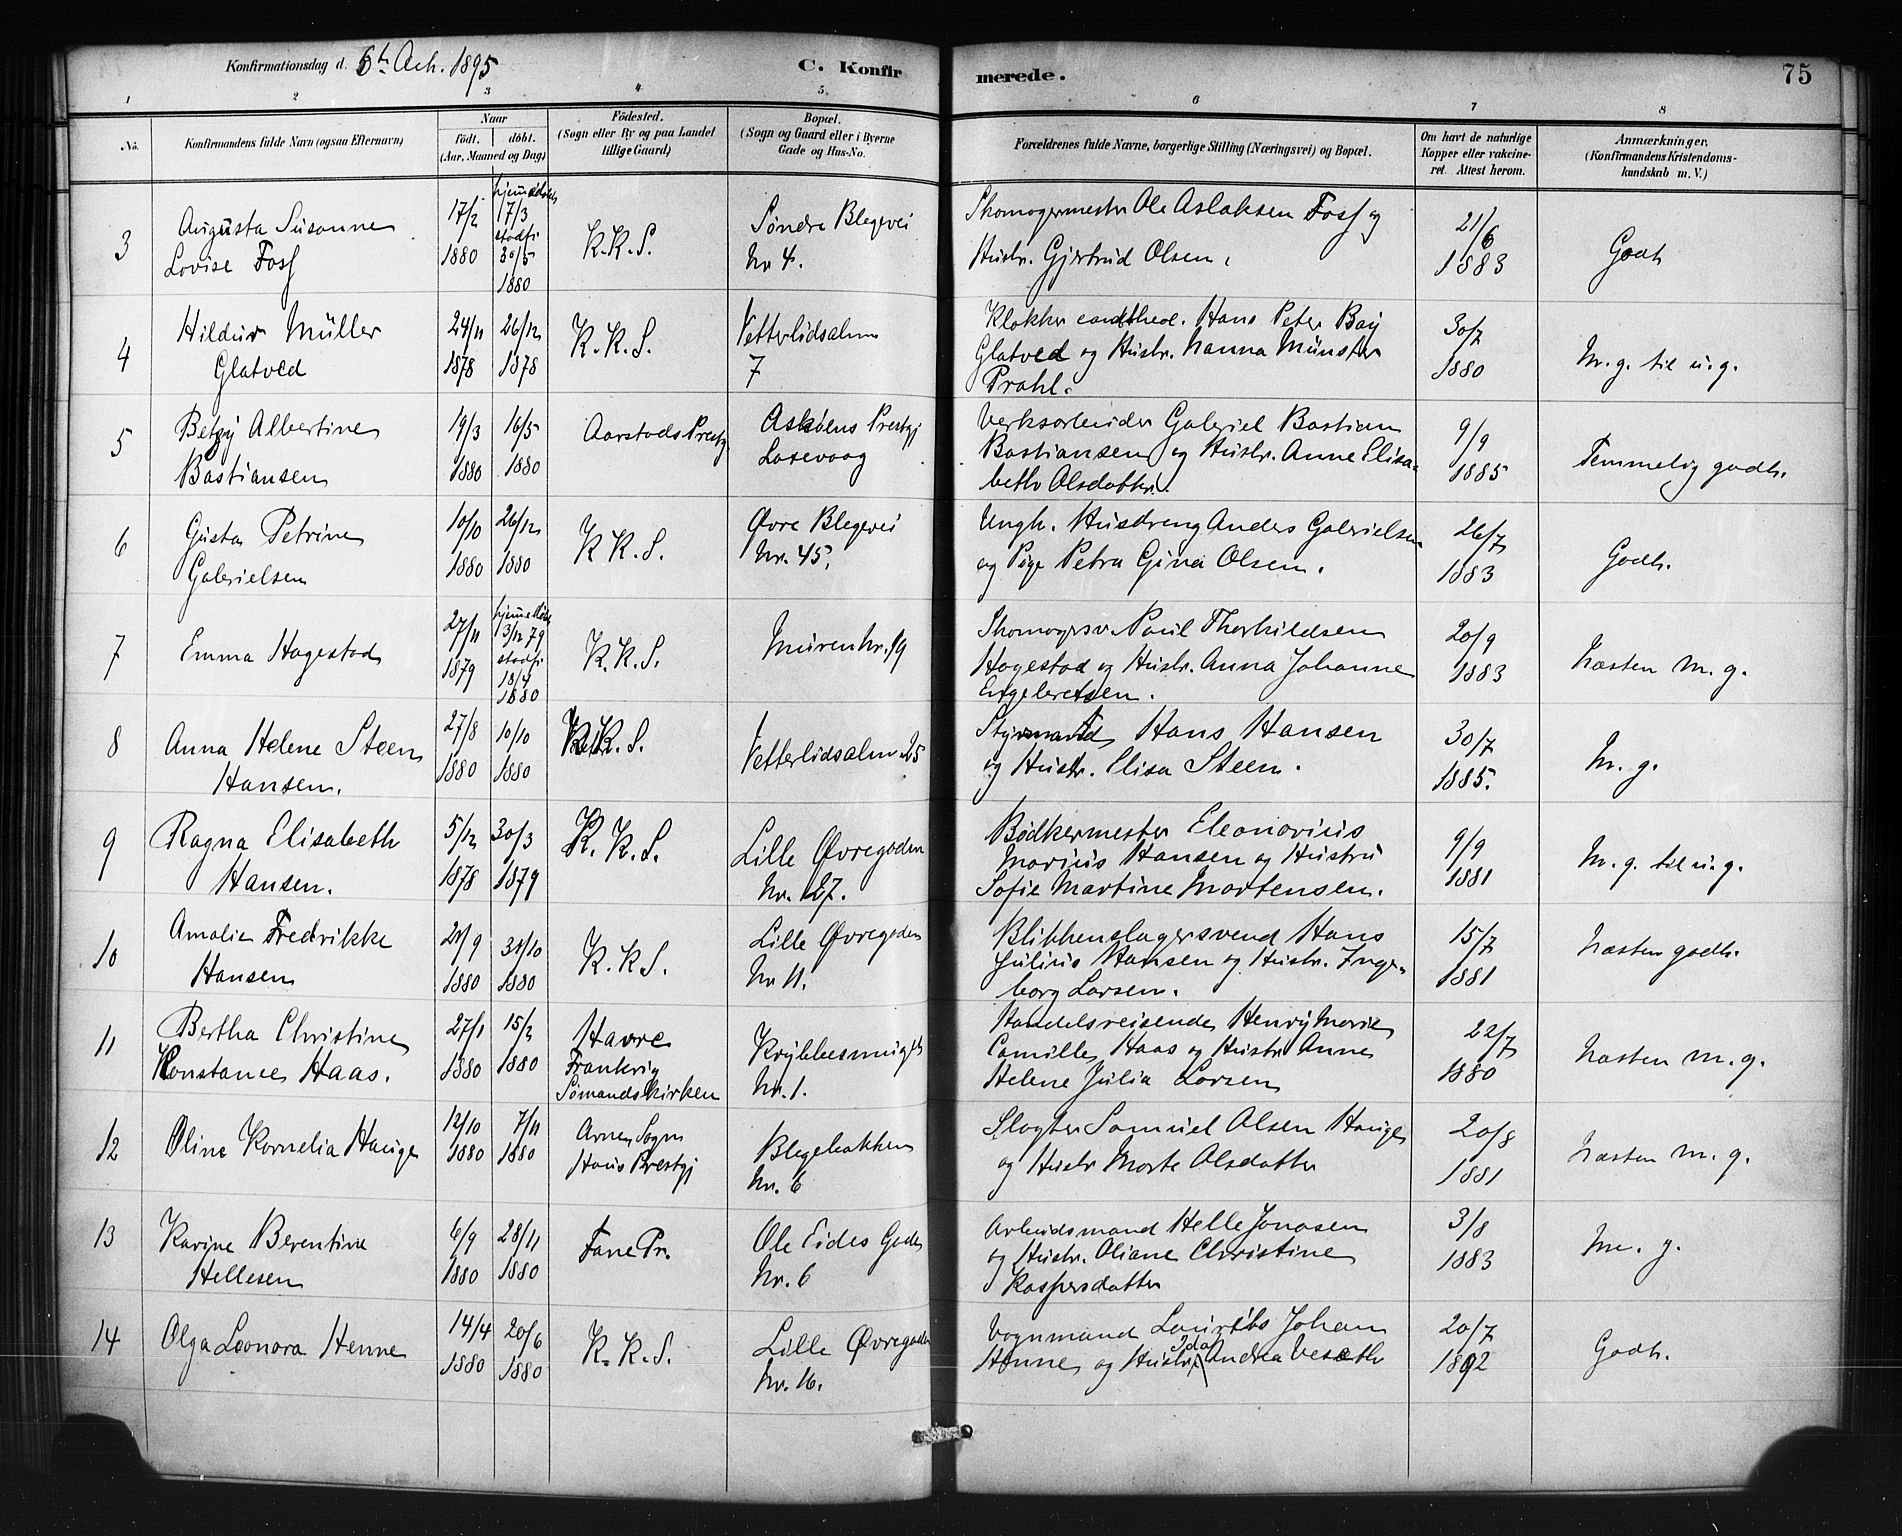 Konfirmationsdag d. 6te Oct. 1895
C. Konfirmerede.
75
1 2 3 4 5 6 7 8
No.
Konfirmandens fulde Navn (ogsaa Efternavn)
Naar
født. døbt.
(Aar, Maaned og Dag)
Fødested.
(Sogn eller By og paa Landet
tillige Gaard)
Bopæl.
(Sogn og Gaard eller i Byerne
Gade og Hus-No.
Forældrenes fulde Navne, borgerlige Stilling (Næringsvei) og Bopæl.
Om havt de naturlige
Kopper eller vakcine-
ret. Attest herom.
Anmærkninger.
(Konfirmandens Kristendoms-
kundskab m. V.)
3
Augusta Susanne
Lovise Foss
17/2
1880
hjemmedøbt
17/3
stadf.
30/5
1880
K. K. S.
Søndre Blegevei
Nr 4.
Skomagermester Ole Aslaksen Foss og
Hustr. Gjertrud Olsen.
21/6
1883
Godt
4
Hildur Müller
Glatved
24/11
1878
26/12
1878
K. K. S.
Vetterlidsalm
7
Klokker cand. theol. Hans Peter Bay
Glatved og Hustr. Nanna Münster
Prahl.
30/7
1880
M. g. til u. g.
5
Betzy Albertine
Bastiansen
19/3
1880
16/5
1880
Aarstads Prestg
Askøens Prestgj
Laxevaag
Verksarbeider Gabriel Bastian
Bastiansen og Hustr. Anne Elisa-
beth Olsdatter.
9/9
1885
Temmelig godt.
6
Gusta Petrine
Gabrielsen
10/10
1880
26/12
1880
K K. S.
Øvre Blegevei
Nr. 45.
Ungk. Husdreng Anders Gabrielsen
og Pige Petra Gina Olsen.
26/7
1883
Godt.
7
Emma Hagestad
27/11
1879
hjemmedøbt
3/12 79
stadf.
18/4
1880
K. K. S.
Muren Nr. 19
Skomagersv. Paul Thorkildsen
Hagestad og Hustr. Anna Johanne
Engebretsen.
20/9
1883
Næsten m. g.
8
Anna Helene Steen
Hansen.
27/8
1880
10/10
1880
K. K. S.
Vetterlidsalm. 25
Styrmand Hans Hansen
og Hustr. Elisa Steen.
30/7
1885.
M. g.
9
Ragna Elisabeth
Hansen.
5/12
1878
30/3
1879
K. K. S.
Lille Øvregaden
Nr. 27.
Bødkermester Eleonovius
Marius Hansen og Hustru
Sofie Martine Mortensen.
9/9
1881
M. g. til u. g.
10
Amalie Fredrikke
Hansen
1880
31/10
1880
K. K S.
Lille Øvregaden
Nr 11.
Blikkenslagersvend Hans
Julius Hansen og Hustr. Inge-
borg Larsen.
15/7
1881
Næsten godt.
11
Bertha Christine
Konstance Haas.
27/1
1880
15/2
1880
Havre
Frankrig
Sømandskirken
Krybbesmuget
Nr. 1.
Handelsreisende Henry Marie
Camille Haas og Hustr Anne
Helene Julia Larsen
22/7
1880
Næsten m. g.
12
Oline Kornelia Hauge
12/10
1880
7/11
1880
Arne Sogn
Haus Prestgj
Blegebakken
Nr. 6
Slagter Samuel Olsen Hauge
og Hustr Marte Olsdatter
20/8
1881
Næsten m. g.
13
Karine Berentine
Hellesen
6/9
1880
28/11
1880
Fane Pr.
Ole Eides Gade
Nr. 6
Arbeidsmand Helle Jonasen
og Hustr. Oliane Christine
Kaspersdatter
3/8
1883
M. g.
14
Olga Leonora Henne
14/4
1880
20/6
1880
K. K. S.
Lille Øvregaden
Nr. 16.
Vognmand Laurits Johan
Henne og Hustr. Ida Andrea Veseth
20/7
1892
Godt.